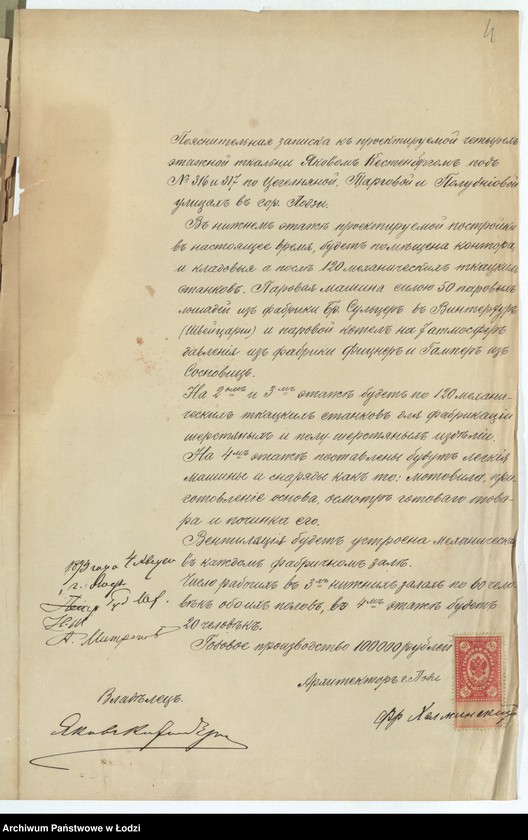 4
Пояснительная записка къ проектируемой четырех
этажной ткальни Яковомъ Кестенбергомъ подъ
№ 316 и 317 по Цегельняной, Тарговой и Полудніовой
улицахъ въ гор. Лодзи.
Въ нижнемъ этажѣ проектируемой постройки
въ настоящее время, будетъ помѣщена контора
и кладовыя а послѣ 120 механическихъ ткацкихъ
станковъ. Паровая машина силою 50 паровыхъ
лошадей изъ фабрики Бр. Сульцеръ въ Винтертурѣ
(Швейцаріи) и паровой котелъ на 7 атмосферъ
давленія изъ фабрики Фицнеръ и Гамперъ изъ
Сосновицъ.
На 2омъ и 3мъ этажѣ будетъ по 120 механи-
ческихъ ткацкихъ станковъ для фабрикаціи
шерстяныхъ и полушерстяныхъ издѣлій.
На 4мъ этажѣ поставлены будутъ легкія
машины и снаряды какъ то: мотовила, при
готовленіе основа, осмотръ готоваго това-
ра и починки его.
Вентиляція будетъ устроена механическа
въ каждомъ фабричномъ залѣ.
Число рабочихъ въ 3хъ нижнихъ залахъ по 60 чело-
вѣкъ обоихъ половъ, въ 4мъ этажѣ будетъ
20 человѣкъ.
Годовое производство 100000 рублей
1893 года 4 Августа
Архитекторъ г. Лодзи
Владѣлецъ.
Фр Хелминскій
Archiwum Państwowe w Łodzi